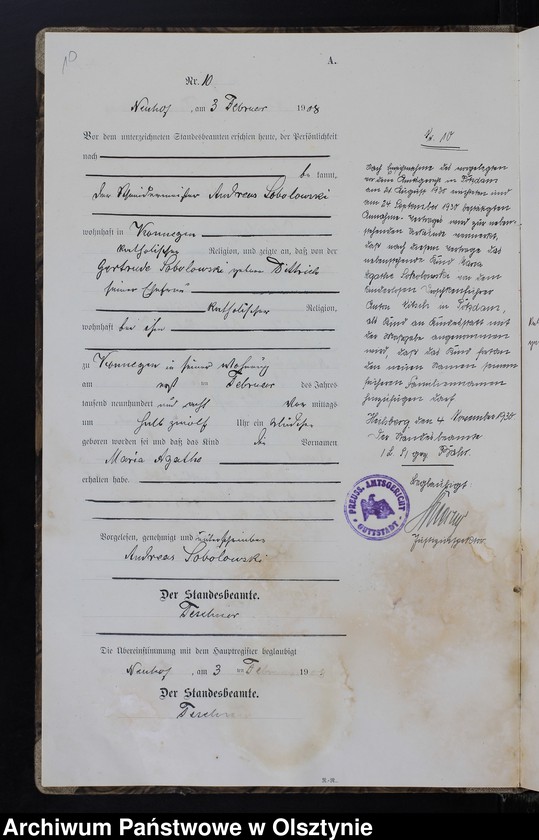 10
A.
Nr. 10
Neuhof, am 3 Februar 1908
Vor dem unterzeichneten Standesbeamten erschien heute, der Persönlichkeit
nach
be kannt,
der Schneidermeister Andreas Sobolowski
wohnhaft in Konnegen
katholischer Religion, und zeigte an, daß von der
Gertrude Sobolowski gebornen Dittrich
seiner Ehefrau
katholischer Religion,
wohnhaft bei ihm
zu Konnegen in seiner Wohnung
am ten Februar des Jahres
tausend neunhundert und acht Vor mittags
um halb zwölf Uhr ein Mädchen
geboren worden sei und daß das Kind die Vornamen
Maria Agathe
erhalten habe.
Vorgelesen, genehmigt und unterschrieben
Andreas Sobolowski
Der Standesbeamte.
Teschner
Die Übereinstimmung mit dem Hauptregister beglaubigt
Neuhof, am 3 ten Februar 1908
Der Standesbeamte.
Teschner
No. 10
des vorgelegten
vor dem Amtsgericht in Potsdam
am 28 August 1930 und
am 24 September 1930 bestätigten
Annahme-Vertrages wird zur neben-
stehenden vermerkt,
daß nach diesem Vertrage das
nebenstehende Kind Maria
Agathe Sobolowski von dem
Anton in Potsdam,
als Kind an Kindesstatt mit
der angenommen
wird, daß das Kind
den neuen Namen seinem
früheren Familiennamen
hinzufügen darf
Heilsberg, den 4 November 1930
Der Standesbeamte
L. S. gez.
Beglaubigt:
PREUSS. AMTSGERICHT
GUTTSTADT
Justizinspektor
Archiwum Państwowe w Olsztynie